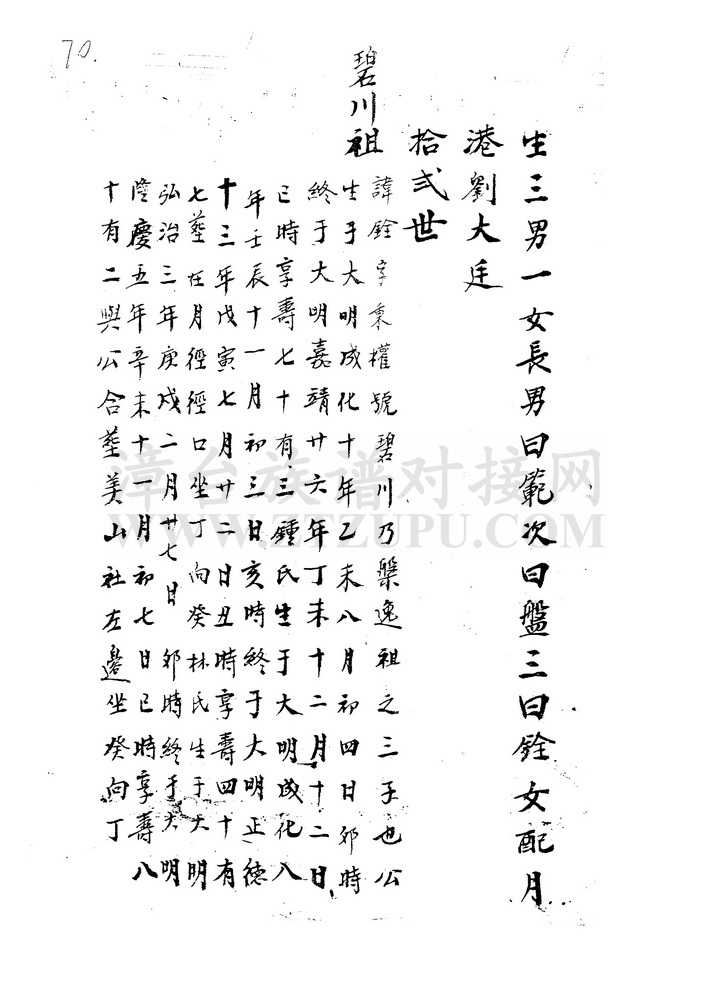 70.
生三男一女長男曰範次曰盤三曰銓女配月
港劉大廷
拾弍世
碧川祖
諱銓字秉權號碧川乃槃逸祖之三子也公
生于大明成化十年乙未八月初四日卯時
終于大明嘉靖廿六年丁未十二月十二日
巳時享壽七十有三鍾氏生于大明成化八
年壬辰十一月初三日亥時終于大明正德
十三年戊寅七月廿二日丑時享壽四十有
七葬在月徑徑口坐丁向癸林氏生于大明
弘治三年庚戌二月廿七日卯時終于大明
隆慶五年辛未十一月初七日巳時享壽八
十有二與公合葬美山社左邊坐癸向丁
漳台族谱对接网
WWW.ZTZUPU.COM